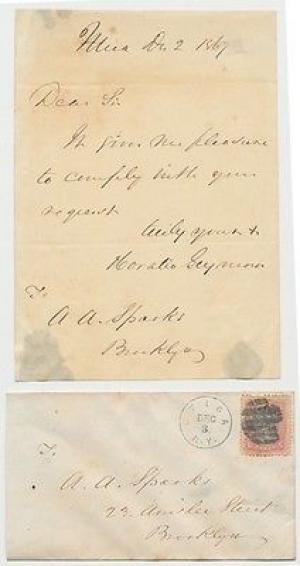 Utica Dec 2 1867
Dear Sir
It gives me pleasure
to comply with your
request
truly yours &
Horatio Seymour
To
A A. Sparks
Brooklyn
UTICA
DEC
3
N.Y.
To
A. A. Sparks
23 Street
Brooklyn